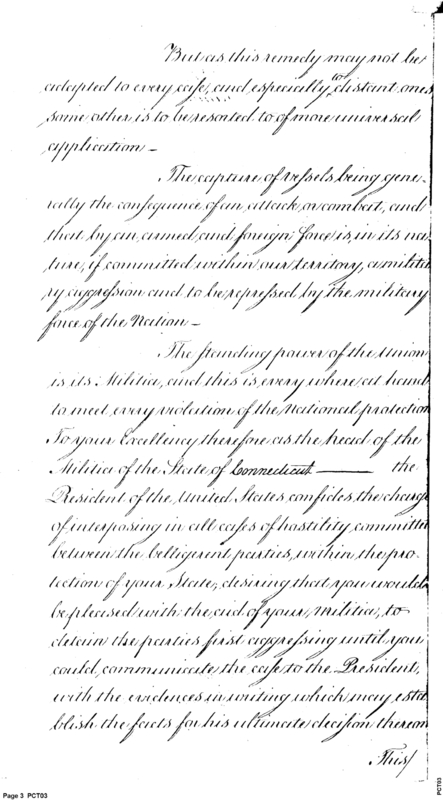 But as this remedy may not be
adapted to every case, and especially to distant ones
some other is to be resorted to of more universal
application -
The capture of vessels being gene-
rally the consequence of an attack, or combat, and
that by an armed and foreign force is, in its na
ture, if committed within our territory, a milita
ry aggression and to be repressed by the military
force of the Nation -
The standing power of the Union
is its Militia, and this is every where at hand
to meet every violation of the National protection
To your Excellency therefore as the head of the
Militia of the State of Connecticut — the
President of the United States confides the charge
of interposing in all cases of hostility committed
between the belligerent parties, within the pro
tection of your State, desiring that you would
be pleased with the aid of your Militia, to
detain the parties first aggressing until you
could communicate the case to the President,
with the evidences in writing which may esta
blish the facts for his ultimate decision thereon
This/
Page 3 PCT03
PCT03